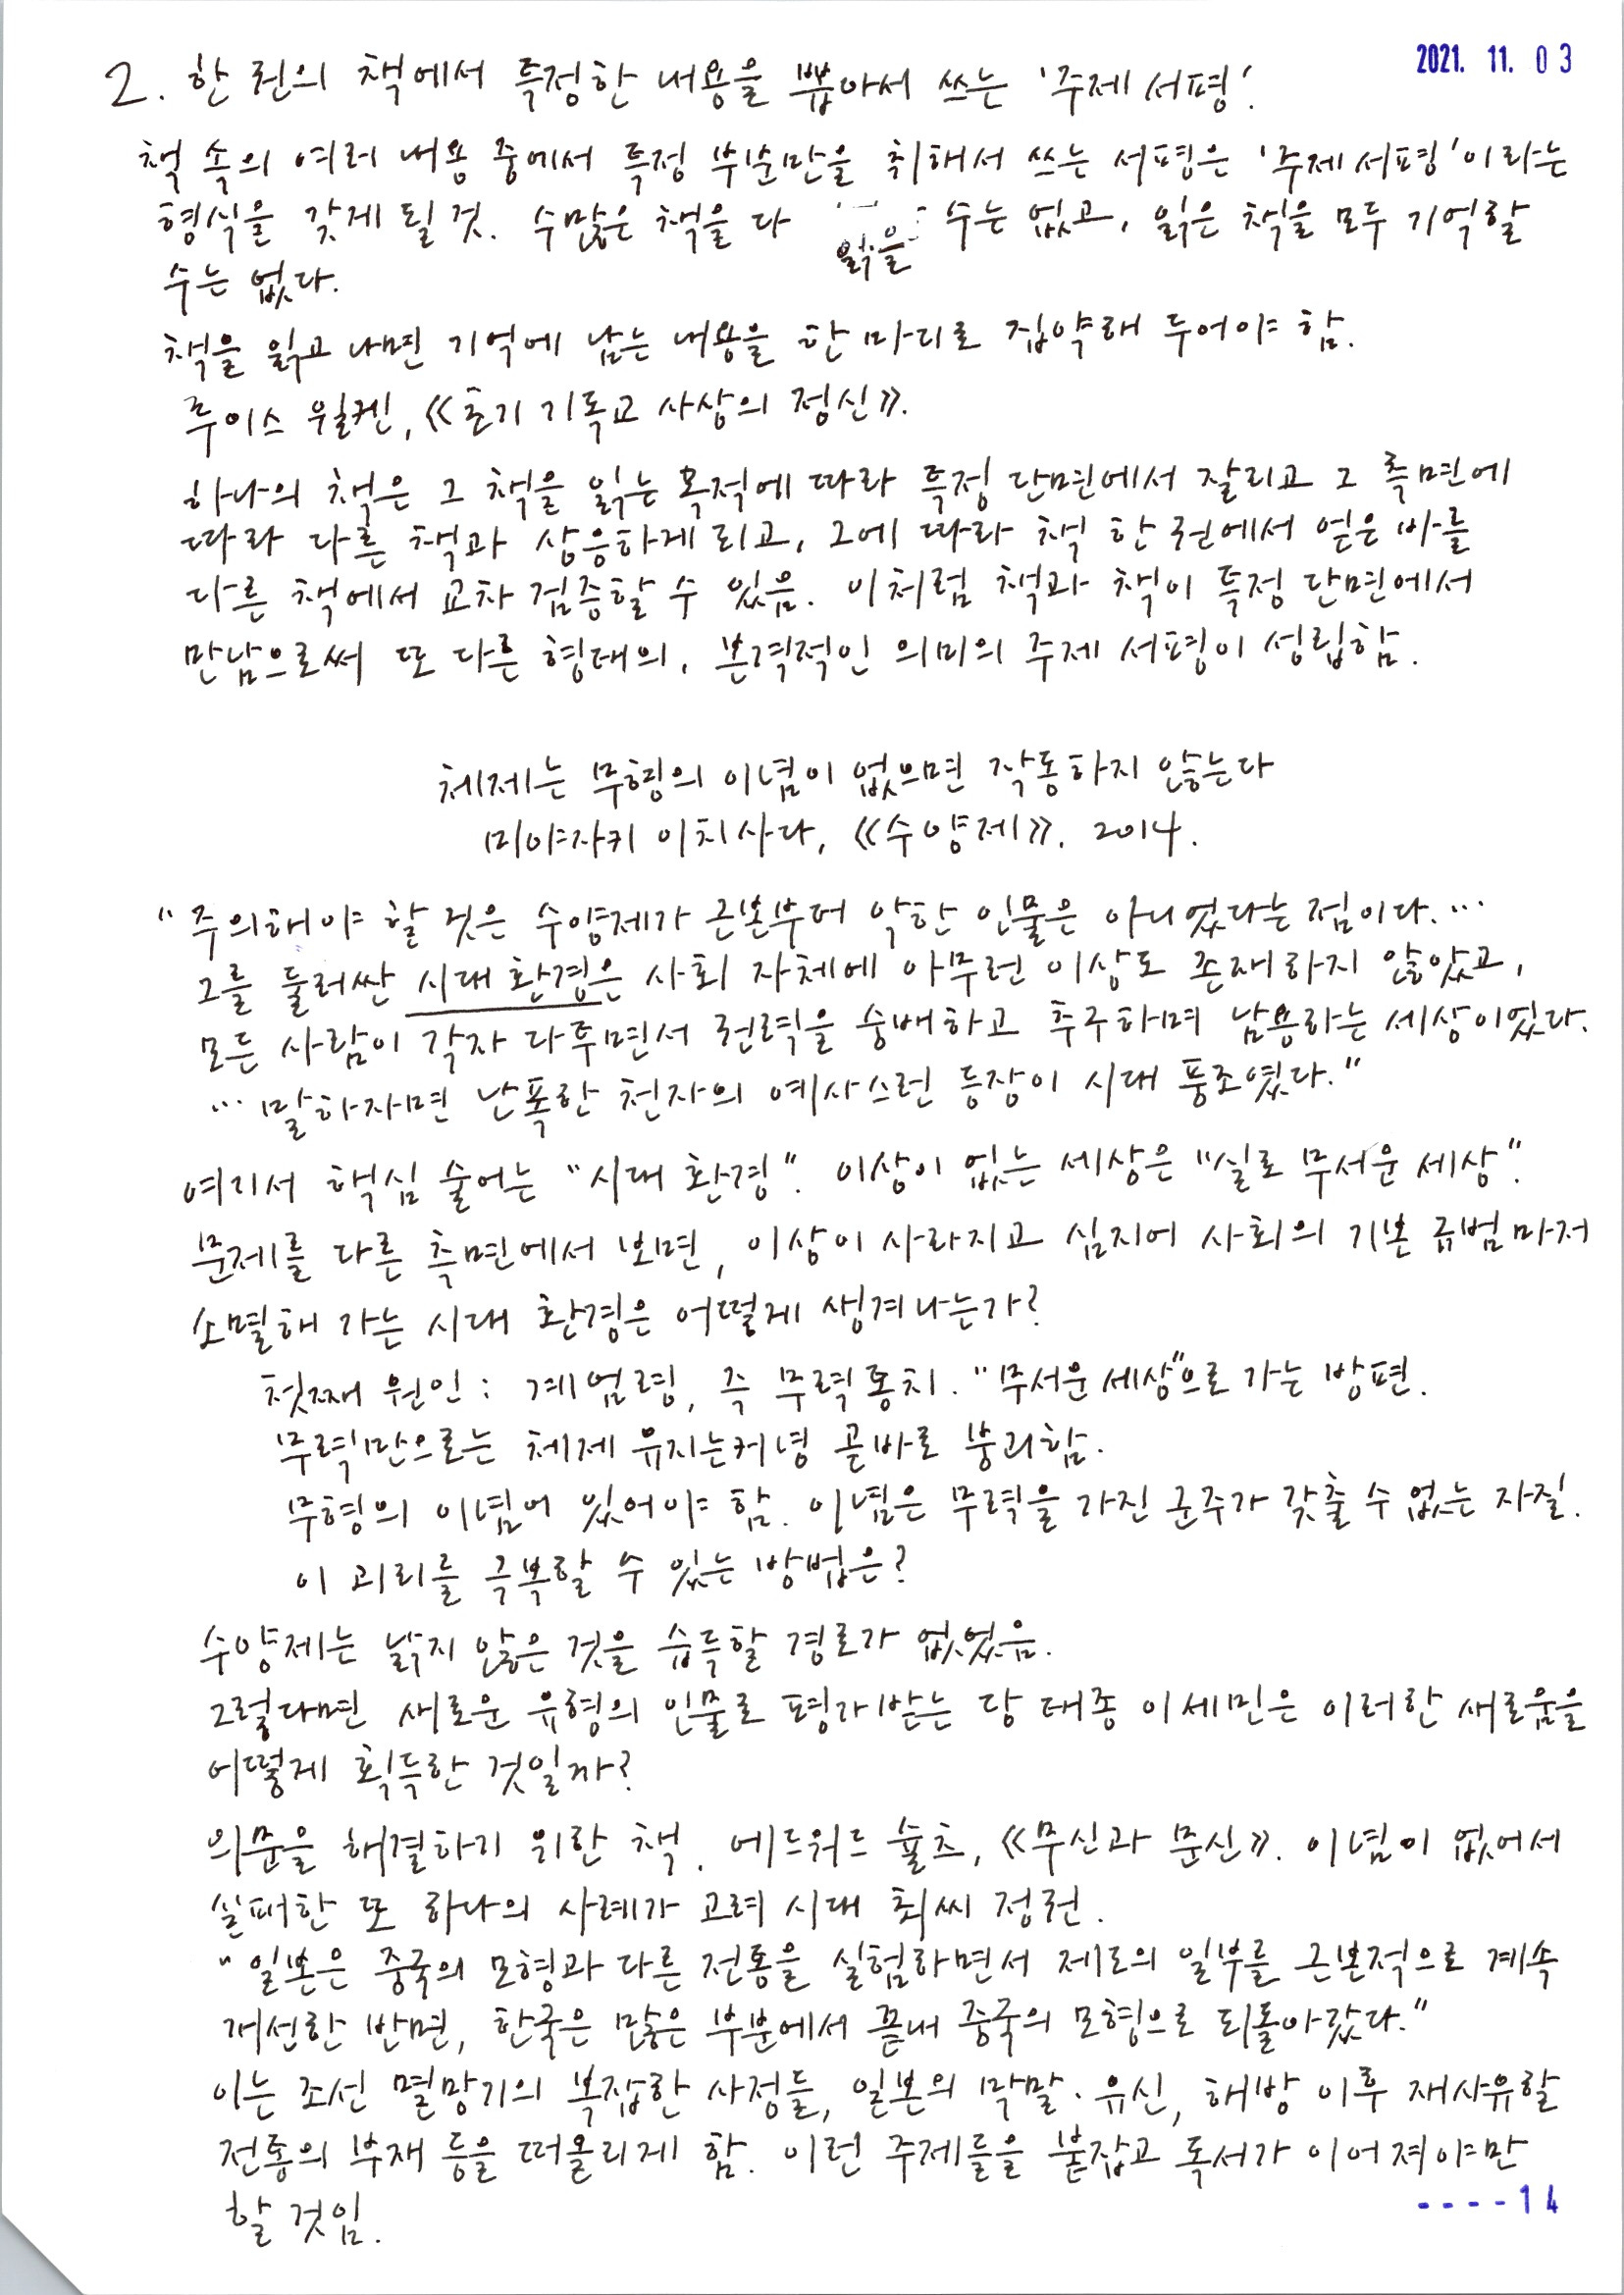 2021. 11. 03
2. 한 권의 책에서 특정한 내용을 뽑아서 쓰는 '주제 서평'.
책 속의 여러 내용 중에서 특정 부분만을 취해서 쓰는 서평은 '주제 서평'이라는
형식을 갖게 될 것. 수많은 책을 다 읽을 수는 없고, 읽은 책을 모두 기억할
수는 없다.
책을 읽고 나면 기억에 남는 내용을 한 마디로 집약해 두어야 함.
루이스 윌켄, 《초기 기독교 사상의 정신》.
하나의 책은 그 책을 읽는 목적에 따라 특정 단면에서 잘리고 그 측면에
따라 다른 책과 상응하게 되고, 그에 따라 책 한 권에서 얻은 바를
다른 책에서 교차 검증할 수 있음. 이처럼 책과 책이 특정 단면에서
만남으로써 또 다른 형태의, 본격적인 의미의 주제 서평이 성립함.
체제는 무형의 이념이 없으면 작동하지 않는다
미야자키 이치사다, 《수양제》. 2014.
"주의해야 할 것은 수양제가 근본부터 악한 인물은 아니었다는 점이다. …
그를 둘러싼 시대 환경은 사회 자체에 아무런 이상도 존재하지 않았고,
모든 사람이 각자 다투면서 권력을 숭배하고 추구하며 남용하는 세상이었다.
… 말하자면 난폭한 천자의 예사스런 등장이 시대 풍조였다."
여기서 핵심 술어는 "시대 환경". 이상이 없는 세상은 "실로 무서운 세상".
문제를 다른 측면에서 보면, 이상이 사라지고 심지어 사회의 기본 규범마저
소멸해 가는 시대 환경은 어떻게 생겨나는가?
첫째 원인: 계엄령, 즉 무력통치. "무서운 세상"으로 가는 방편.
무력만으로는 체제 유지는커녕 곧바로 붕괴함.
무형의 이념이 있어야 함. 이념은 무력을 가진 군주가 갖출 수 없는 자질.
이 괴리를 극복할 수 있는 방법은?
수양제는 낡지 않은 것을 습득할 경로가 없었음.
그렇다면 새로운 유형의 인물로 평가받는 당 태종 이세민은 이러한 새로움을
어떻게 획득한 것일까?
의문을 해결하기 위한 책. 에드워드 슐츠, 《무신과 문신》. 이념이 없어서
실패한 또 하나의 사례가 고려 시대 최씨 정권.
"일본은 중국의 모형과 다른 전통을 실험하면서 제도의 일부를 근본적으로 계속
개선한 반면, 한국은 많은 부분에서 끝내 중국의 모형으로 되돌아갔다."
이는 조선 멸망기의 복잡한 사정들, 일본의 막말·유신, 해방 이후 재사유할
전통의 부재 등을 떠올리게 함. 이런 주제들을 붙잡고 독서가 이어져야만
할 것임.
----14